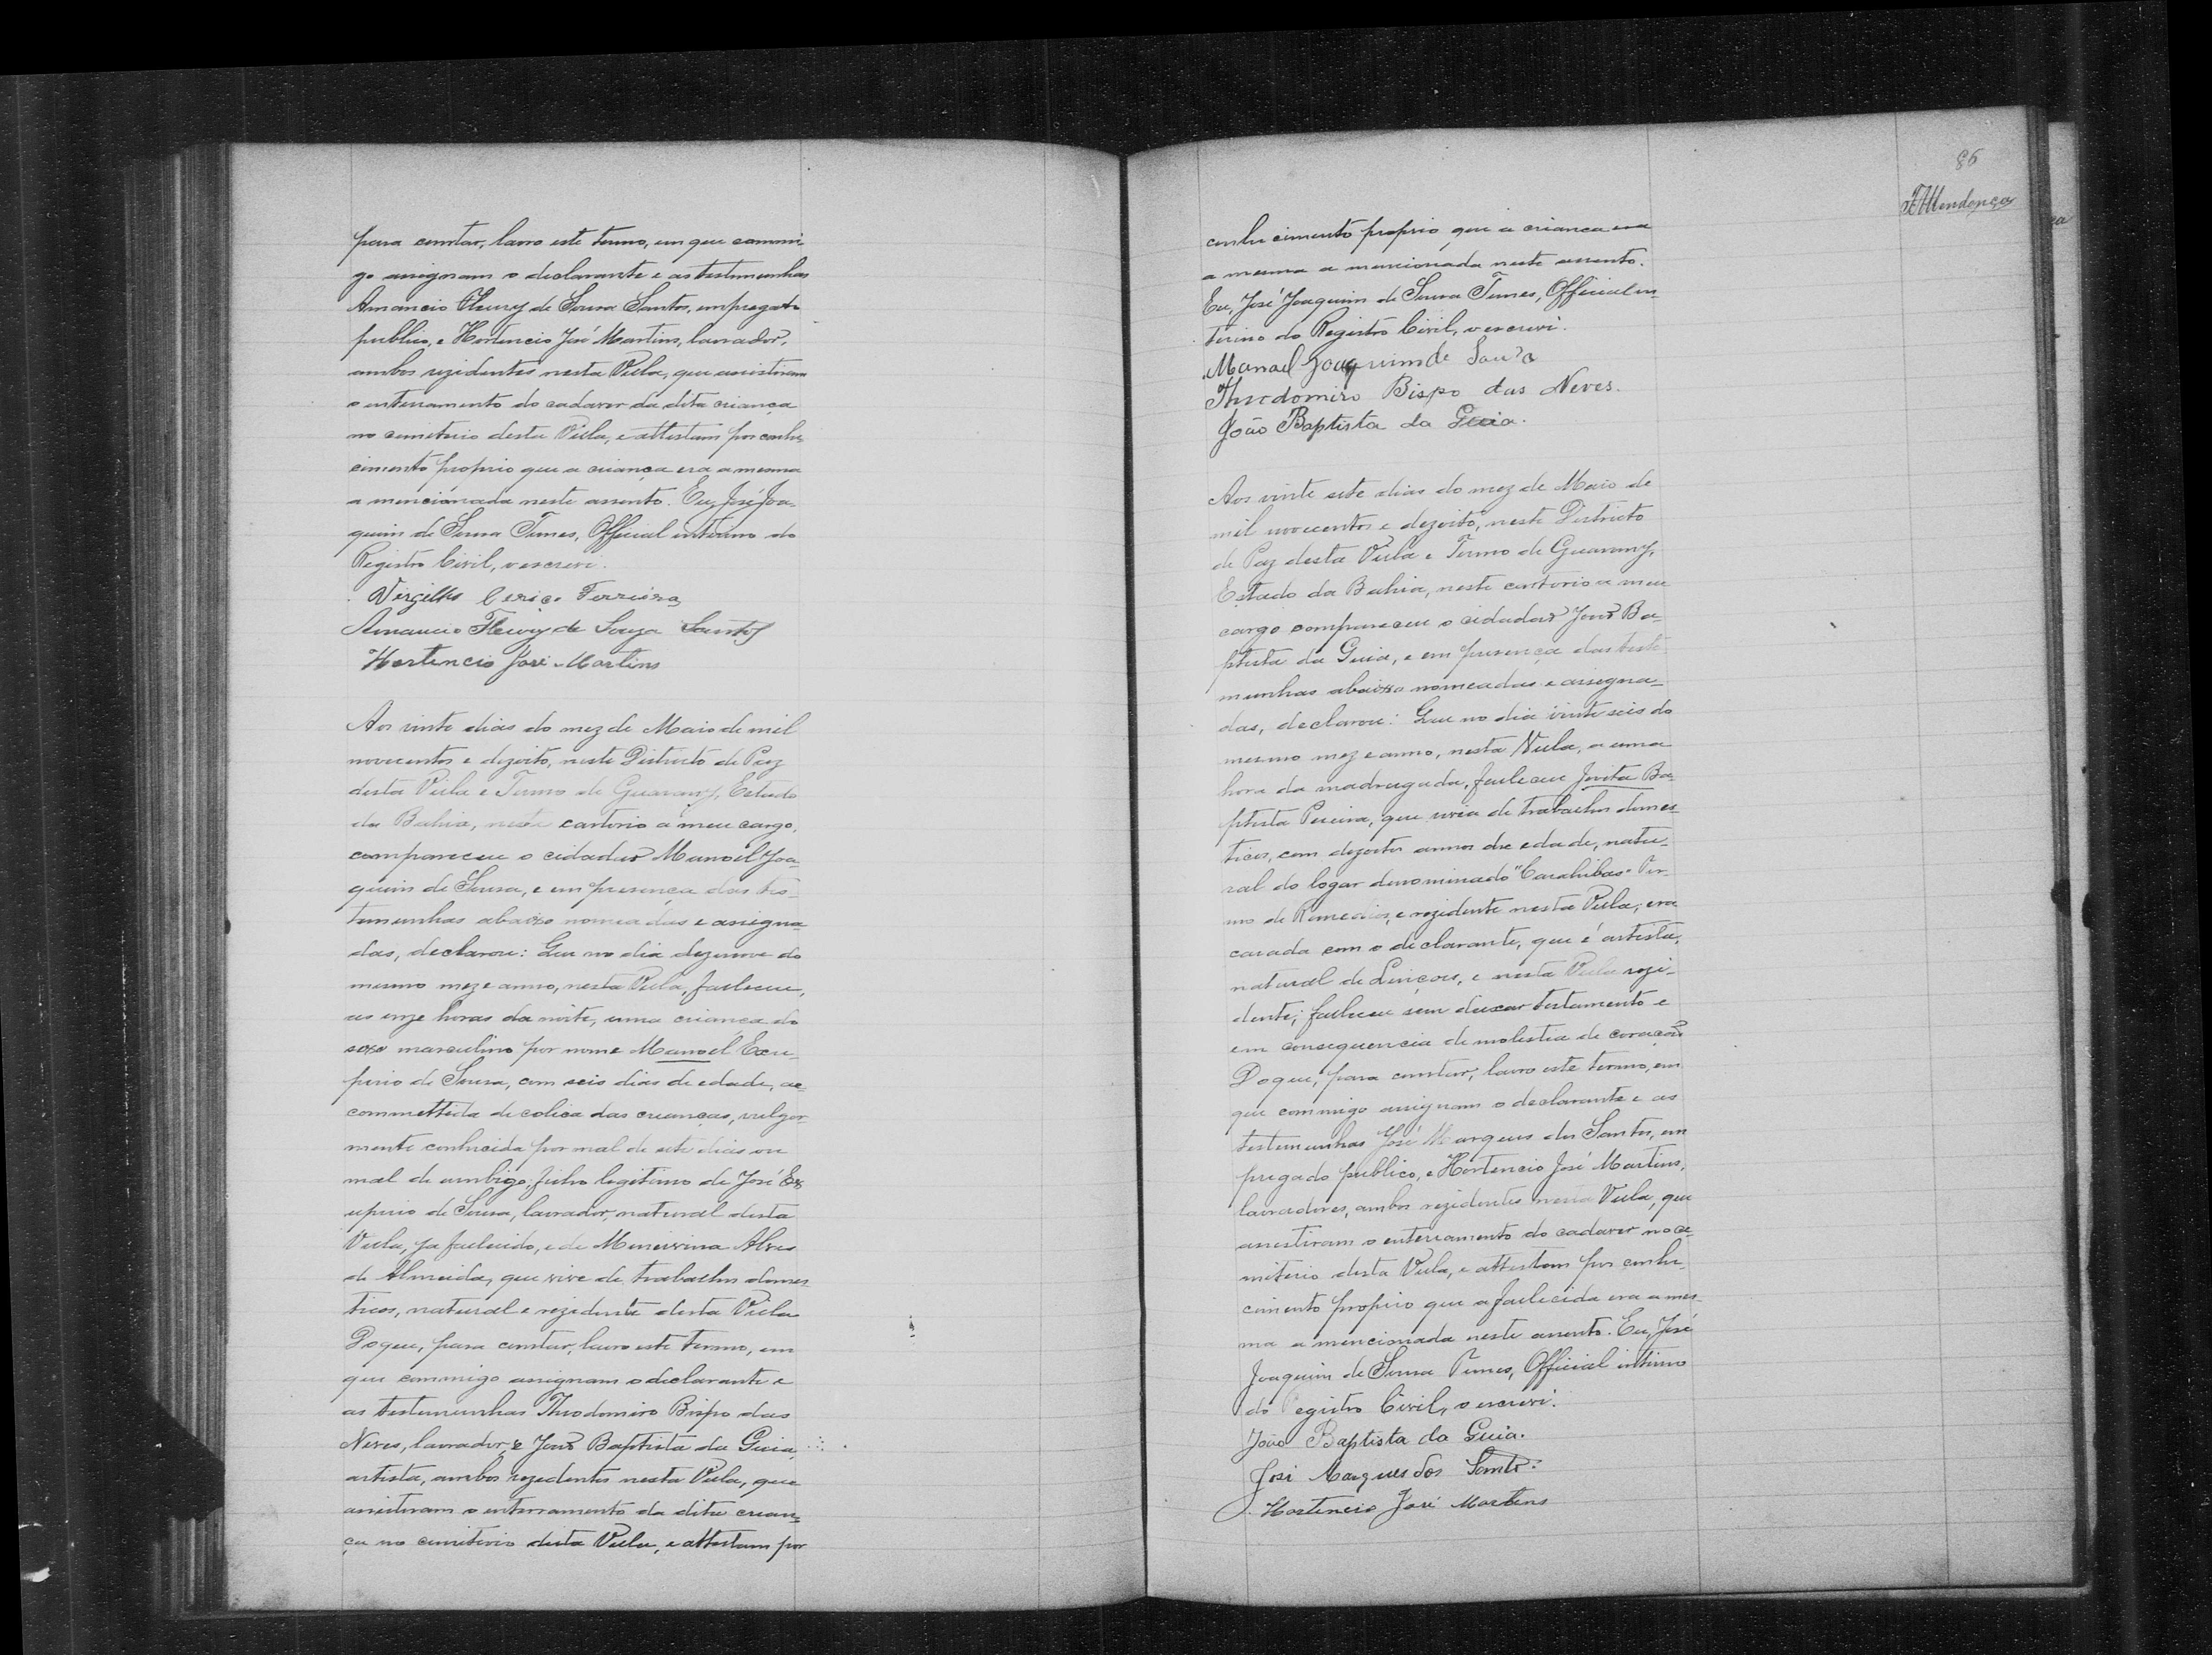 para constar, lavro este termo, em que commi
go assignam o declarante e as testemunhas
Amancio Fleury de Sousa Santos, empregado
publico, e Hortencio José Martins, lavrador,
ambos rezidentes nesta Villa, que assistiram
o enterramento do cadaver da dita criança
no cemiterio desta Villa, e attestam por conhe
cimento proprio que a criança era a mesma
a mencionada neste assento. Eu, José Joa-
quim de Sousa Tunes, Official interino do
Registro Civil, o escrevi.
Vergilho Ferreira
Amancio Fleury de Souza Santos
Hortencio José Martins
Aos vinte dias do mez de Maio de mil
novecentos e dezoito, neste Districto de Paz
desta Villa e Termo de Guarany, Estado
da Bahia, neste cartorio a meu cargo,
compareceu o cidadão Manoel Joa
quim de Sousa, e em presença das tes-
temunhas abaixo nomeadas e assigna
das, declarou: Que no dia dezenove do
mesmo mez e anno, nesta Villa, falleceu,
as onze horas da noite, uma criança do
sexo masculino por nome Manoel Exu-
perio de Sousa, com seis dias de edade, ac
commettida de colica das crianças, vulgar
mente conhecida por mal de sete dias ou
mal de umbigo, filho legitimo de José Ex
uperio de Sousa, lavrador, natural desta
Villa, ja fallecido, e de Minervina Alves
de Almeida, que vive de trabalhos domes
ticos, natural e rezidente desta Villa
Do que, para constar, lavro este termo, em
que commigo assignam o declarante e
as testemunhas Theodomiro Bispo das
Neves, lavrador, e João Baptista da Guia,
artista, ambos rezidentes nesta Villa, que
assistiram o enterramento da dita crian-
ça no cemiterio desta Villa, e attestam por
86
Mendonça
conhecimento proprio que a criança era
a mesma a mencionada neste assento.
Eu, José Joaquim de Sousa Tunes, Official in-
terino do Registro Civil, o escrevi.
Manoel Joaquim de Souza
Theodomiro Bispo das Neves.
João Baptista da Guia.
Aos vinte sete dias do mez de Maio de
mil novecentos e dezoito, neste Districto
de Paz desta Villa e Termo de Guarany,
Estado da Bahia, neste cartorio a meu
cargo compareceu o cidadão João Ba-
ptista da Guia, e em presença das teste
munhas abaixo nomeadas e assigna-
das, declarou: Que no dia vinte seis do
mesmo mez e anno, nesta Villa, a uma
hora da madrugada, falleceu Jovita Ba-
ptista Pereira, que vivia de trabalhos domes-
ticos, com dezoito annos de edade, natu-
ral do logar denominado "Carahibas" Ter-
mo de Remedios, e rezidente nesta Villa; era
casada com o declarante, que é artista,
natural de Lençoes, e nesta Villa rezi-
dente; falleceu sem deixar testamento e
em consequencia de molestia de coração
Do que, para constar, lavro este termo, em
que commigo assignam o declarante e as
testemunhas José Marques dos Santos, em
pregado publico, e Hortencio José Martins,
lavradores, ambos rezidentes nesta Villa, que
assistiram o enterramento do cadaver no ce-
miterio desta Villa, e attestam por conhe-
cimento proprio que a fallecida era a mes-
ma a mencionada neste assento. Eu, José
Joaquim de Sousa Tunes, Official interino
do Registro Civil, o escrevi.
João Baptista da Guia.
José Marques dos Santos
Hortencio José Martins